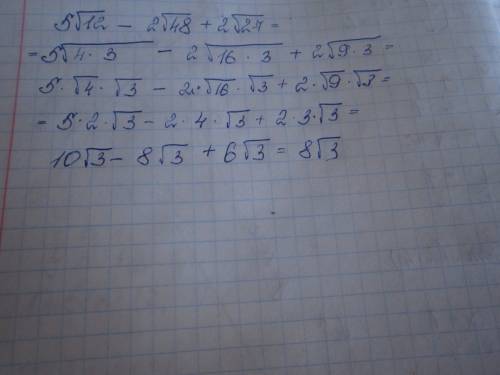 5√12 − 2√48 + 2√27 =
= 5√4·3 − 2√16·3 + 2√9·3 =
5·√4·√3 − 2·√16·√3 + 2·√9·√3 =
= 5·2·√3 − 2·4·√3 + 2·3·√3 =
10√3 − 8√3 + 6√3 = 8√3